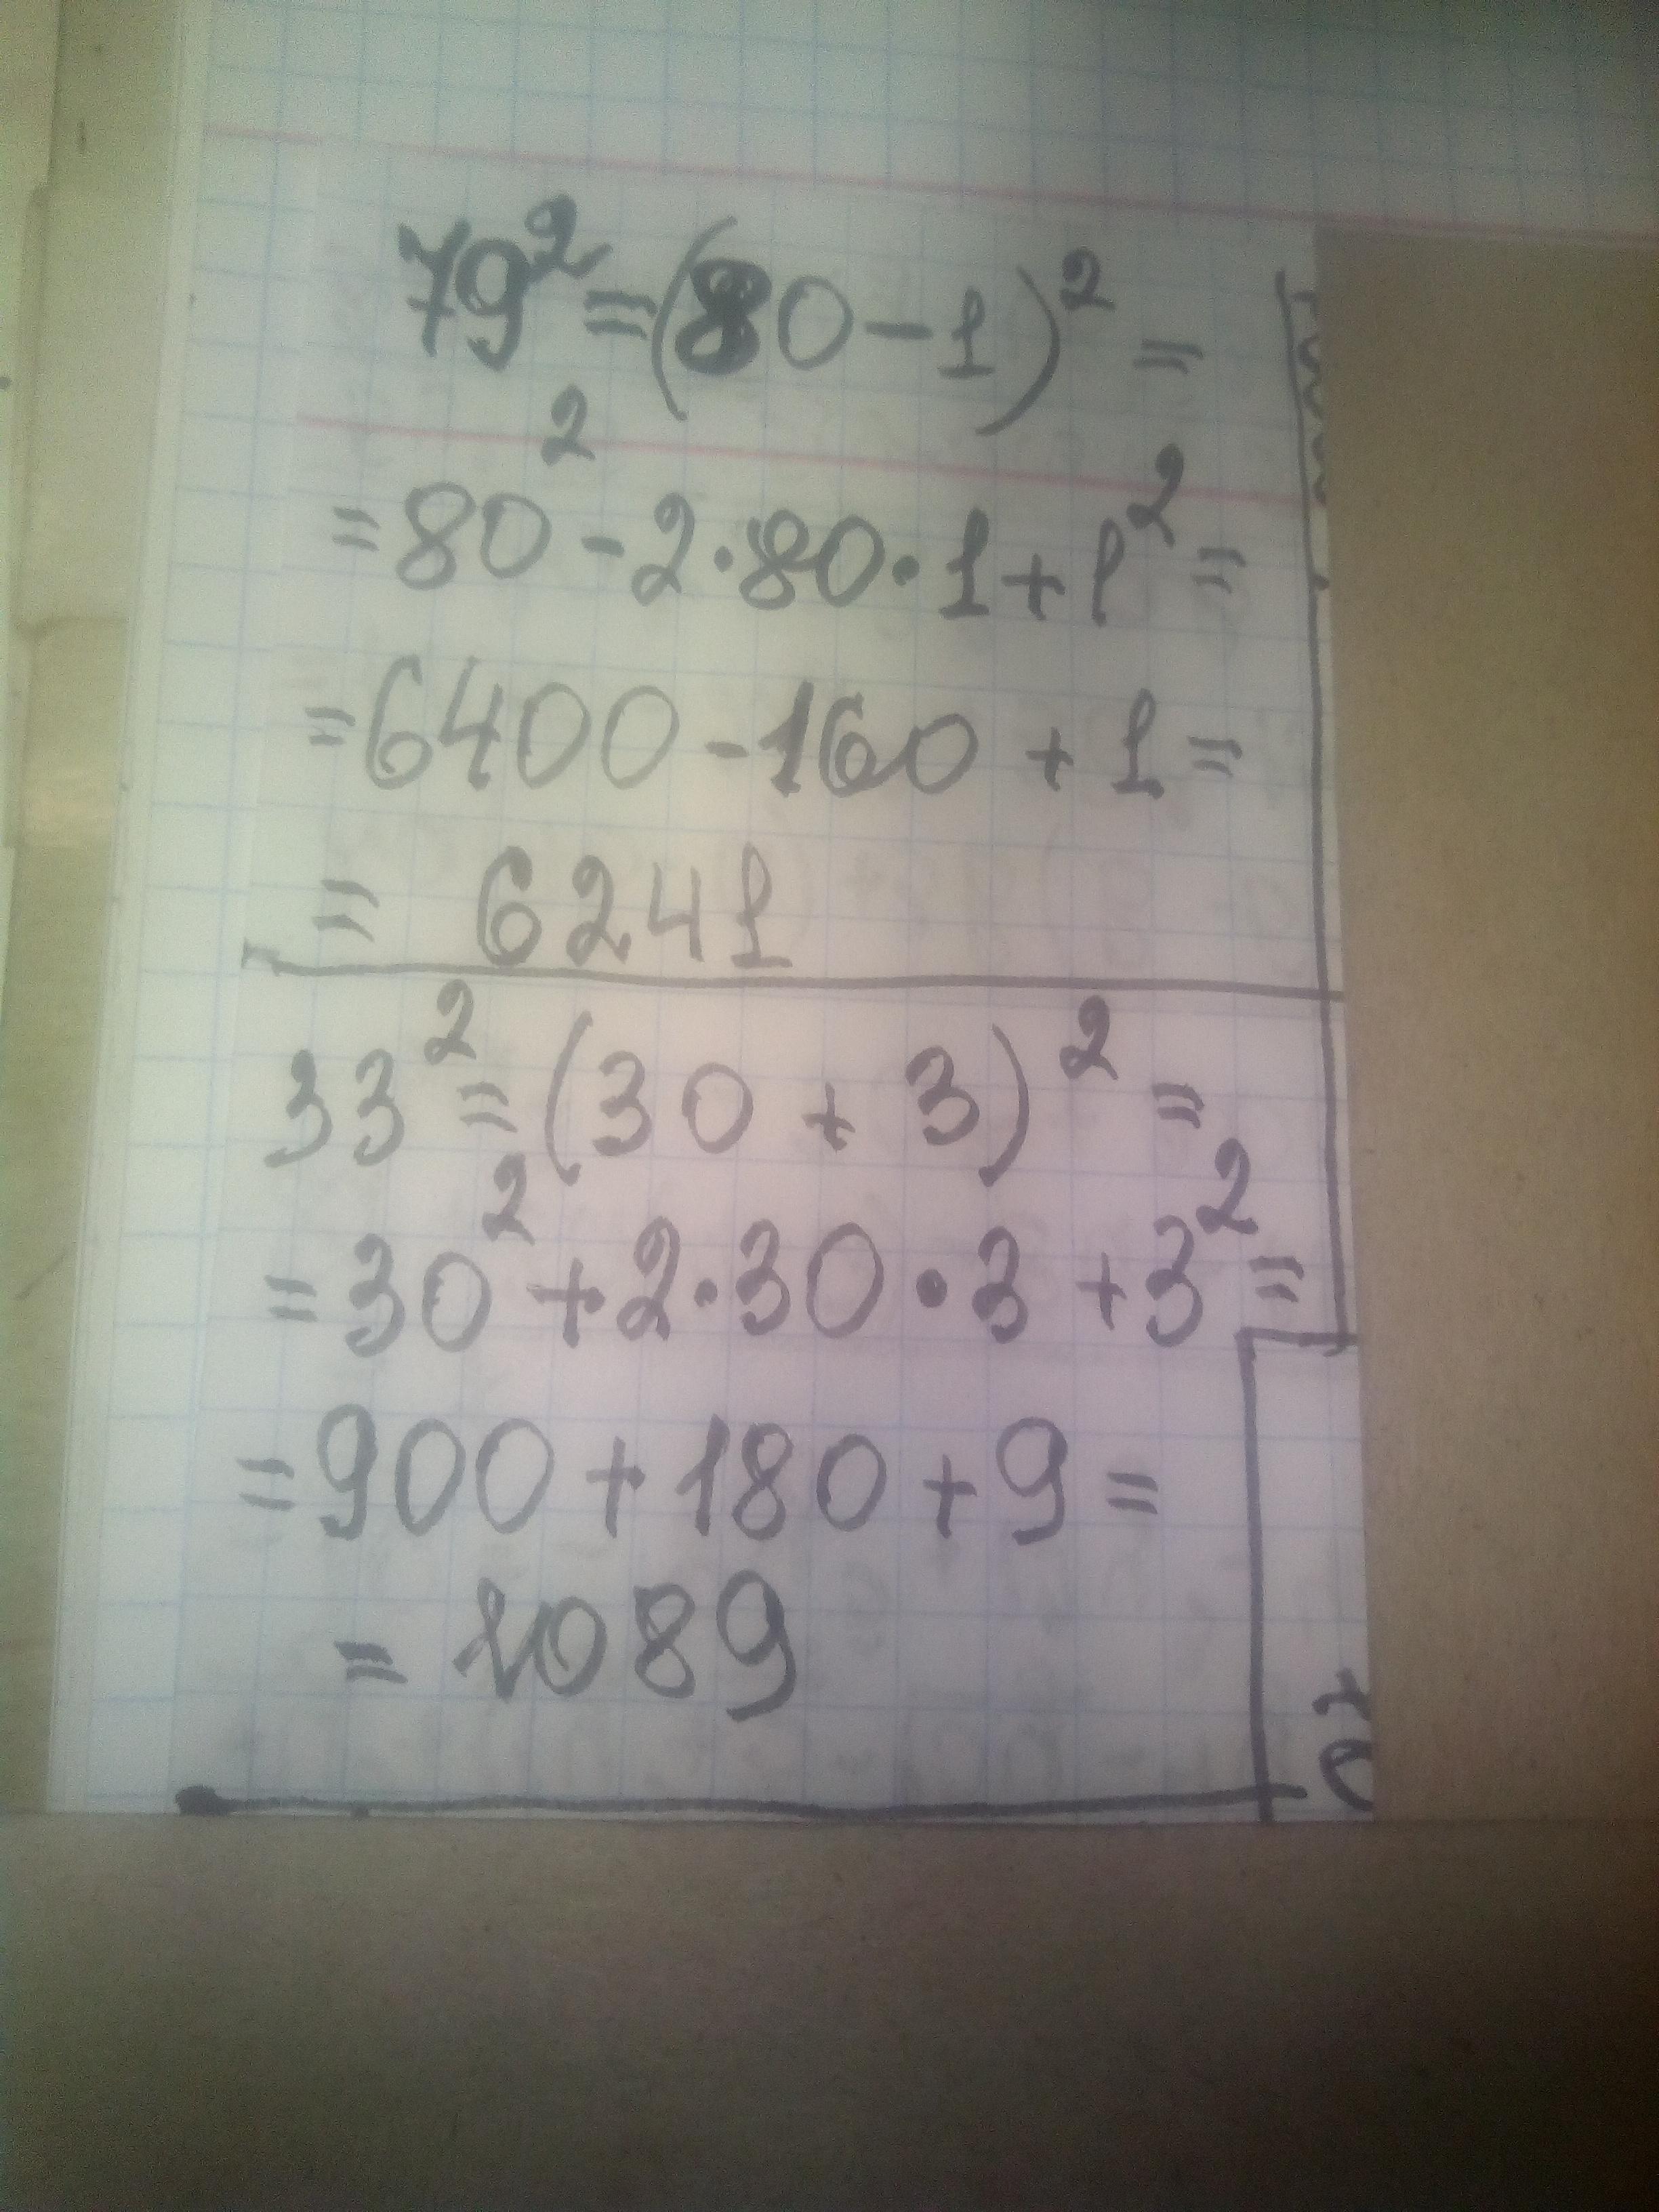 79²=(80-1)²=
=80²-2·80·1+1²=
=6400-160+1=
=6241
33²=(30+3)²=
=30²+2·30·3+3²=
=900+180+9=
=1089